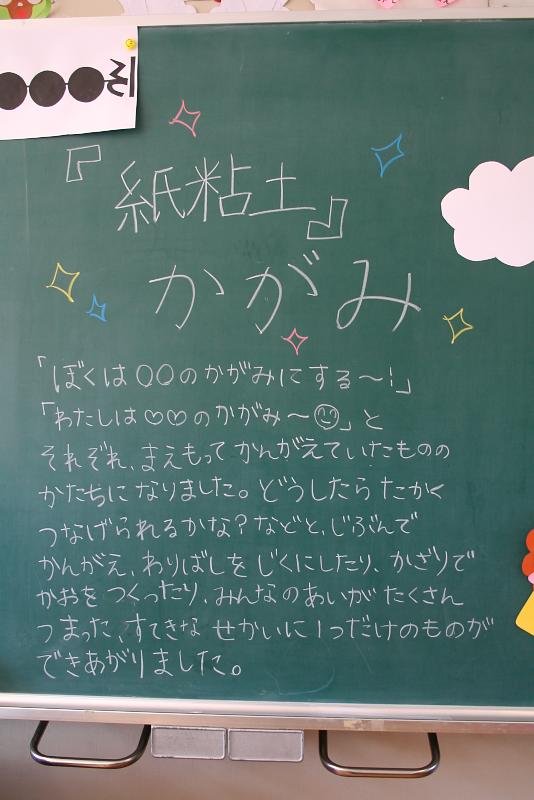 『紙粘土』
かがみ
「ぼくは〇〇のかがみにする〜!」
「わたしは♡♡のかがみ〜☺」と
それぞれ、まえもってかんがえていたものの
かたちになりました。どうしたらたかく
つなげられるかな?などと、じぶんで
かんがえ、わりばしをじくにしたり、かざりで
かおをつくったり、みんなのあいがたくさん
つまった、すてきなせかいに1つだけのものが
できあがりました。